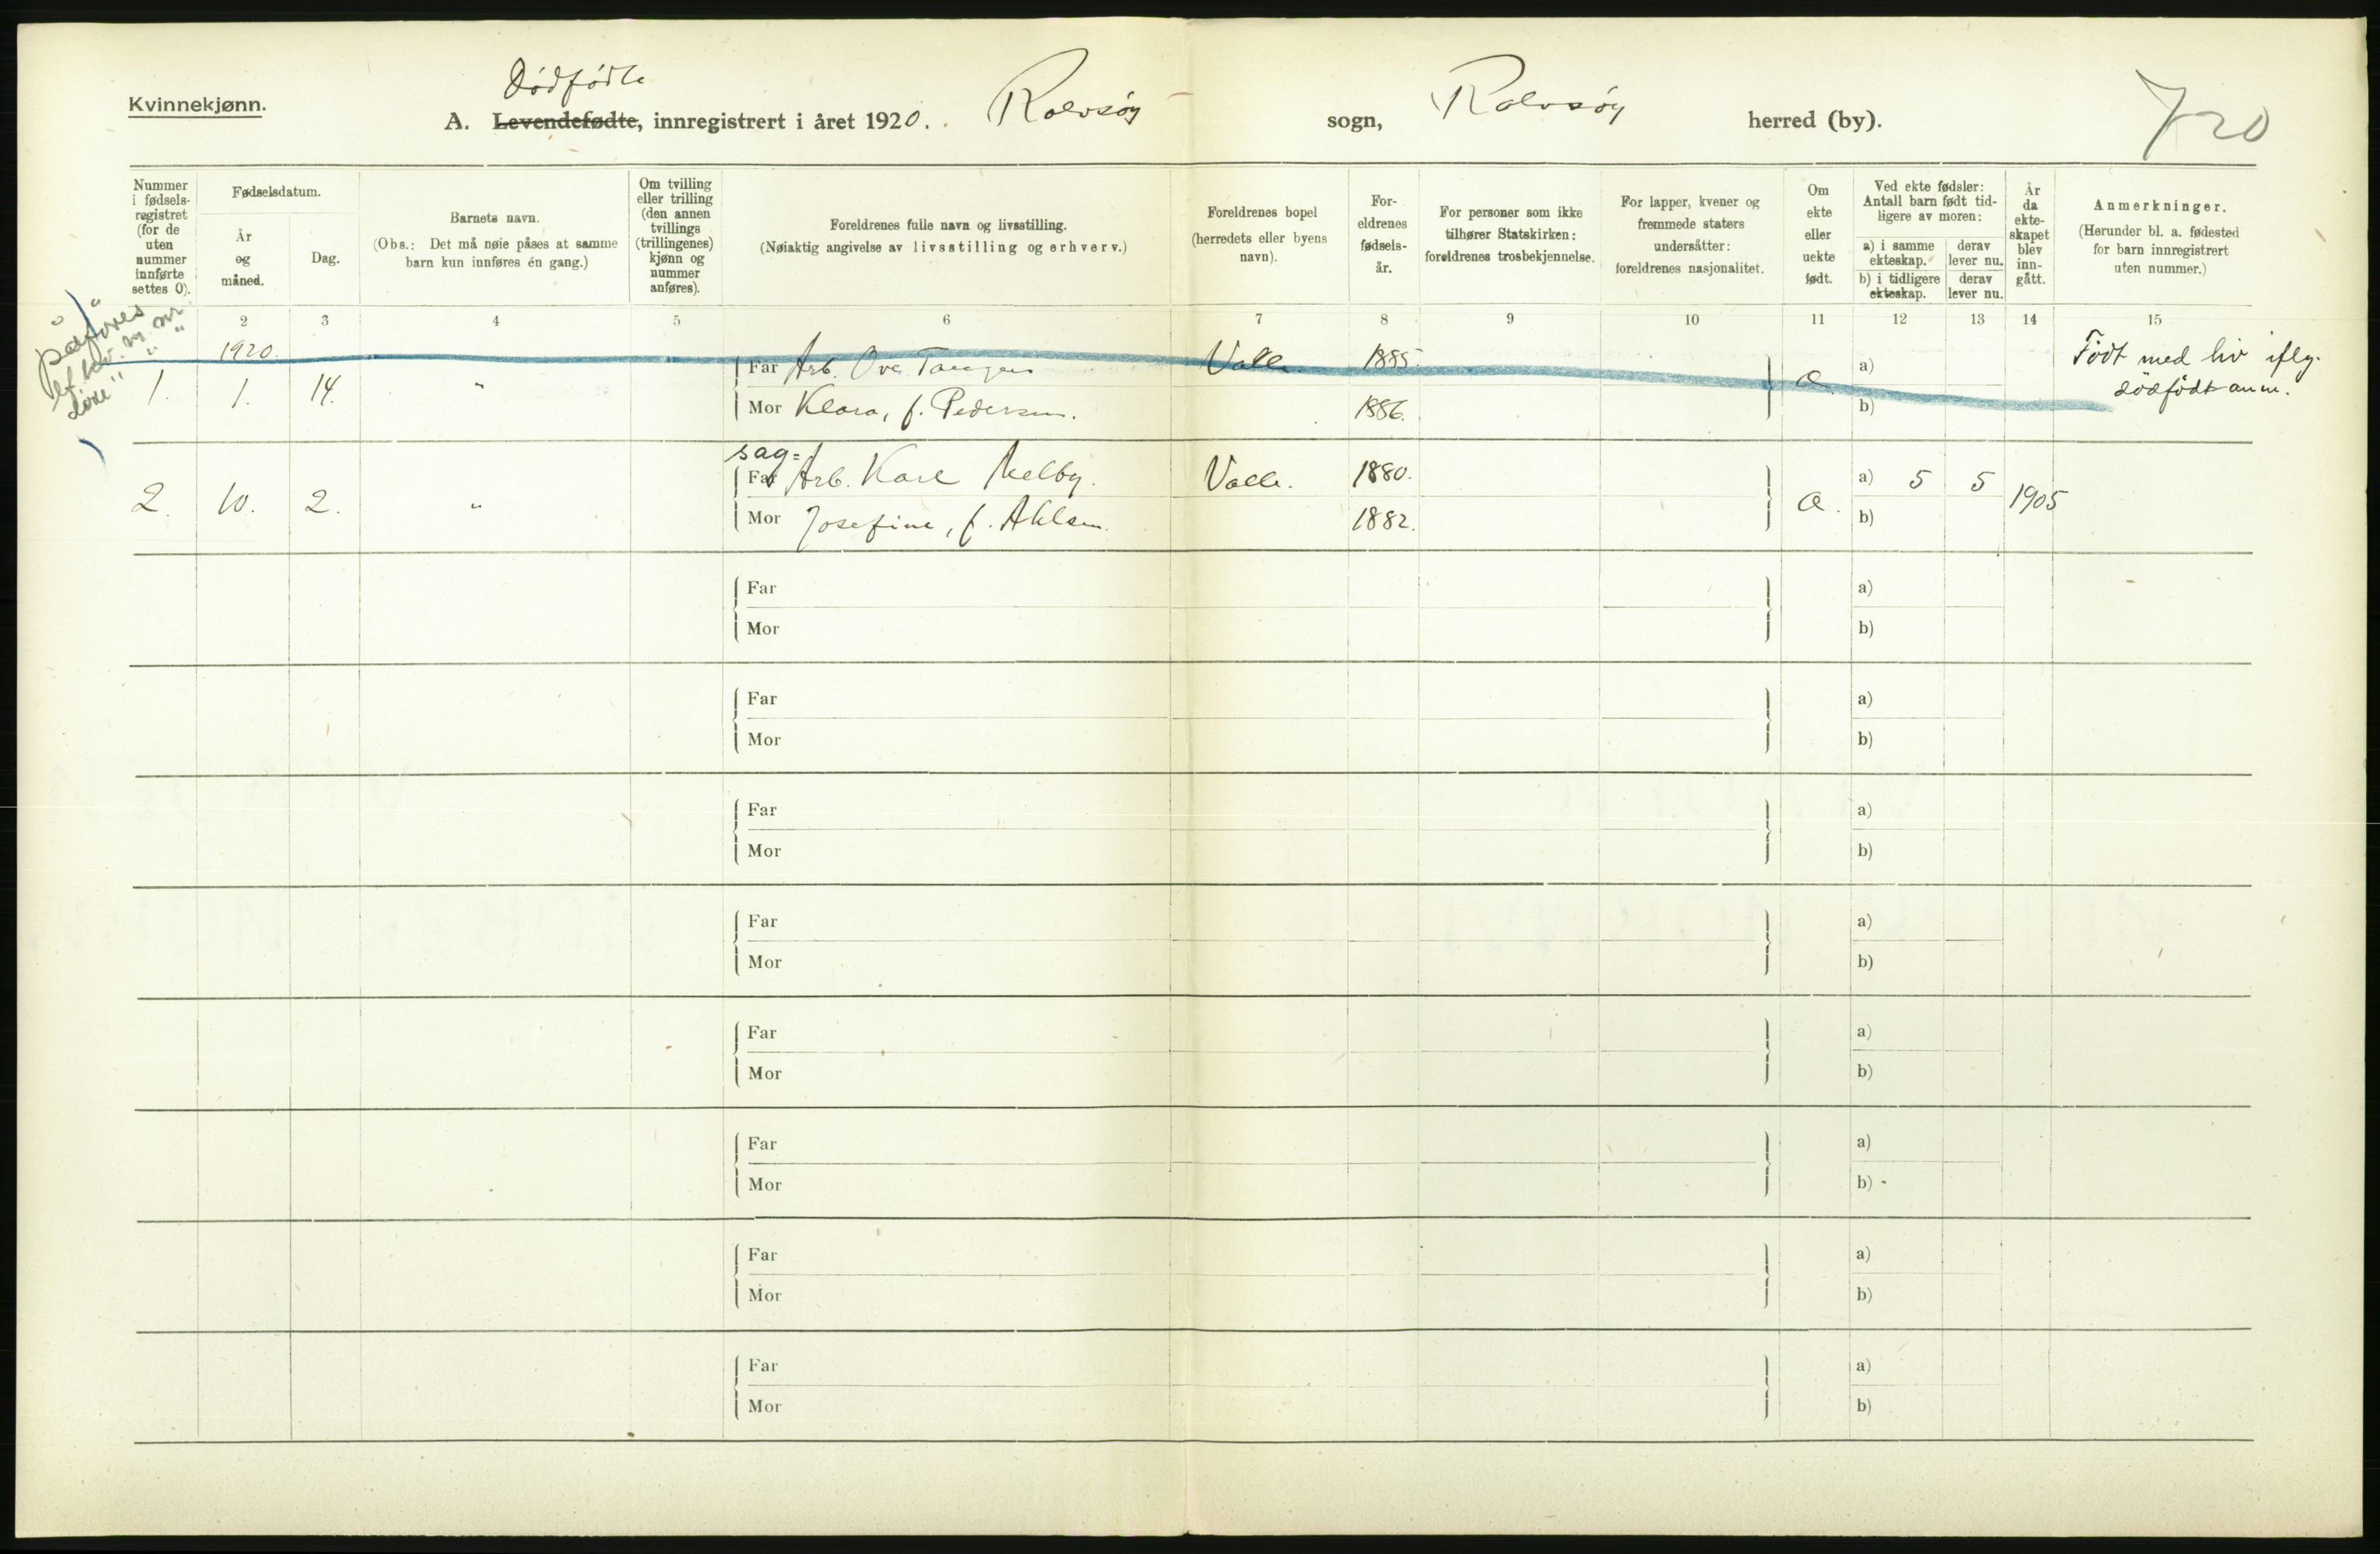 Kvinnekjønn.
Dødfødte
A. Levendefødte, innregistrert i året 1920. Rolvsøy sogn, Rolvsøy herred (by).
720
Nummer i fødsels-registret (for de uten nummer innførte settes 0).
Fødselsdatum.
År og måned.
Dag.
Barnets navn.
(Obs.: Det må nøie påses at samme barn kun innføres én gang.)
Om tvilling eller trilling (den annen tvillings (trillingenes) kjønn og nummer anføres).
Foreldrenes fulle navn og livsstilling.
(Nøiaktig angivelse av livsstilling og erhverv.)
Foreldrenes bopel (herredets eller byens navn).
For-eldrenes fødsels-år.
For personer som ikke tilhører Statskirken: foreldrenes trosbekjennelse.
For lapper, kvener og fremmede staters undersåtter: foreldrenes nasjonalitet.
Om ekte eller uekte født.
Ved ekte fødsler: Antall barn født tid-ligere av moren:
a) i samme ekteskap.
derav lever nu.
b) i tidligere ekteskap.
derav lever nu.
År da ekte-skapet blev inn-gått.
Anmerkninger.
(Herunder bl. a. fødested for barn innregistrert uten nummer.)
2 3 4 5 6 7 8 9 10 11 12 13 14 15
påføres
1920.
1. 1. 14. "
Far Arb. Ove Tangen Valle 1885.
Mor Klara, f. Pedersen. 1886.
a)
b)
Født med liv iflg. dødfødt anm.
sag=
2. 10. 2. "
Far Arb. Karl Melby. Valle. 1880.
Mor Josefine, f. Ahlsen. 1882.
a) 5 5 1905
b)
Far a)
Mor b)
Far a)
Mor b)
Far a)
Mor b)
Far a)
Mor b)
Far a)
Mor b)
Far a)
Mor b)
Far a)
Mor b)
Far a)
Mor b)